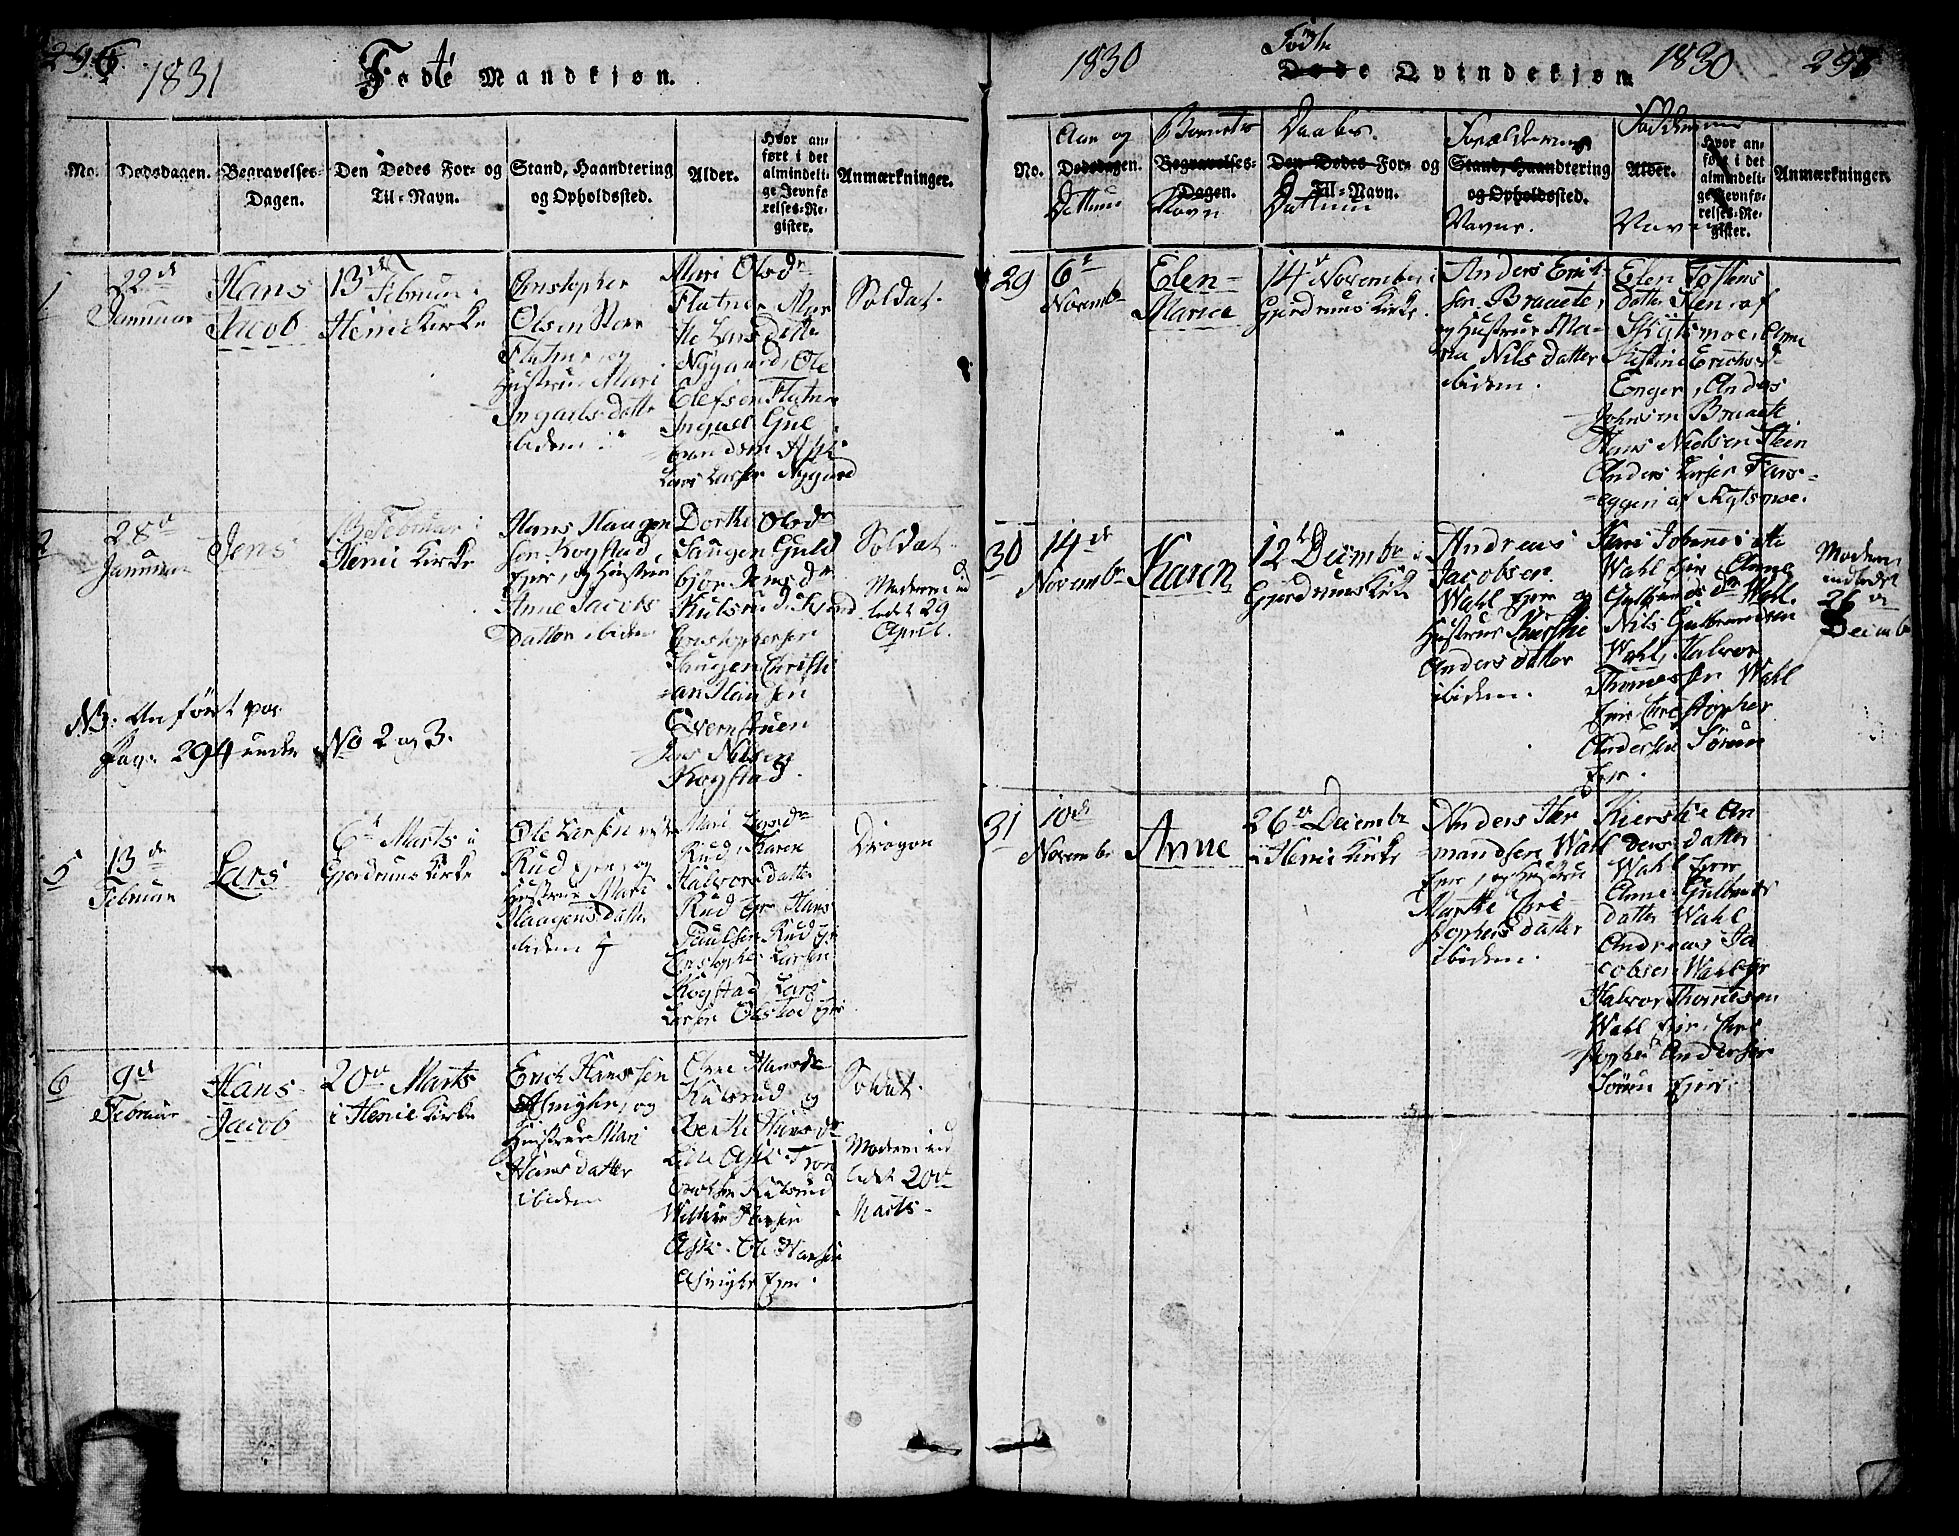 296
1831
Fødte Mandkjøn.
No.
Dødsdagen.
Begravelses-
Dagen.
Den Dødes For- og
Til-Navn.
Stand, Haandtering
og Opholdssted.
Alder.
Hvor an-
ført i det
almindeli-
ge Jevnfø-
relses-Re-
gister.
Anmærkninger.
1
22de
Januar
Hans
Jacob
13de
Februar i
Henie Kirke
Christopher
Olsen
Flatner og
Hustrue Mari
Ingvels datter
ibidem
Mari Olsdr
Flatner, Mar
the Larsdatter
Nygaard, Ole
Olefsen Flatner
Ingvel Gul
brandsen Ask
Lars Larsen Nygaard
Soldat.
2
28de
Januar
Jens
13 Februar i
Henie Kirke
Hans Haagen
sen Kogstad,
Ejer, og Hustrue
Anne Jacobs
Datter ibidem
Dorthe Olsdr
Haugen Guld
bjør Jensdr
Kulsrud
Christophersen
Haugen Christi
an Hansen
Nilsen
Kogstad.
Soldat
Moderen ind
ledt 29
April.
NB: Anført paa
Pag: 294 under No 2 og 3.
5
13de
Februar
Lars
6te Marts i
Gjerdrums Kirke
Ole Larsen
Rud Ejer, og
Hustrue Mari
Haagens datter
ibidem
Mari Larsdr
Rud, Karen
Halvors datter
Rud Ejer Hans
Paulsen Rud Ejer
Christopher Larsen
Kogstad Lars
Larsen Olstad Ejer
Dragon
6
9de
Februar
Hans
Jacob
20de Marts
i Henie Kirke
Erich Hanssen
Asmyhr, og
Hustrue Mari
Hans datter
ibidem
Anne Hansdr
Kulsrud og
Berthe Hansdr
Lille Ask
Kulsrud
Hansen
Ask. Ole Hansen
Asmyhr Ejer.
Soldat.
Moderen ind
ledt 20de
Marts.
1830
Fødte
Døde Qvindekjøn
1830
297
No.
Aar og
Dødsdagen.
Dattum
Barnets
Begravelses-
Dagen.
Navn
Daabs.
Den Dødes For- og
Til-Navn.
Dattum
Forældernes
Stand, Haandtering
og Opholdssted.
Navne.
Faddernes
Alder.
Navne
Hvor an-
ført i det
almindeli-
ge Jevnfø-
relses-Re-
gister.
Anmærkninger.
29
6te
Novembr
Elen
Marie
14de November i
Gjerdrums Kirke.
Anders Erik
sen Braaete,
og Hustrue Ma-
ria Nils datter
ibidem.
Elen Tostens
datter Sten af
Skytsmoe, Anne
Kistine Erichsd
Enger, Anders
Johnsen Braaete
Hans Nielsen Stein
Anders Larsen Fars-
eggen af Skytsmoe.
30
14de
Novembr
Karen
12te Decimbr i
Gjerdrums Kirke
Andreas
Jacobsen
Wahl Ejer og
Hustrue Kirstie
Anders datter
ibidem.
Kari Johannes dtr
Wahl Ejer, Anne
Gulbrandsdr Wahl.
Nils Gulbrandsen
Wahl, Halvor
Thomessen Wahl
Ejer, Christopher
Andersen Sørum
Ejer.
Moderen
indledet
26de
Decimbr
31
10de
Novembr
Anne
26de Decimbr
i Henie Kirke
Anders Her
mandsen Wahl
Ejer, og Hustrue
Marthe Chri-
stophers datter
ibidem.
Kierstie An
ders datter
Wahl Ejer
Anne Gulbrands
datter Wahl
Andreas Ja
cobsen Wahl Ejer
Halvor Thomesen
Wahl Ejer, Chri
stopher Andersen
Sørum Ejer.